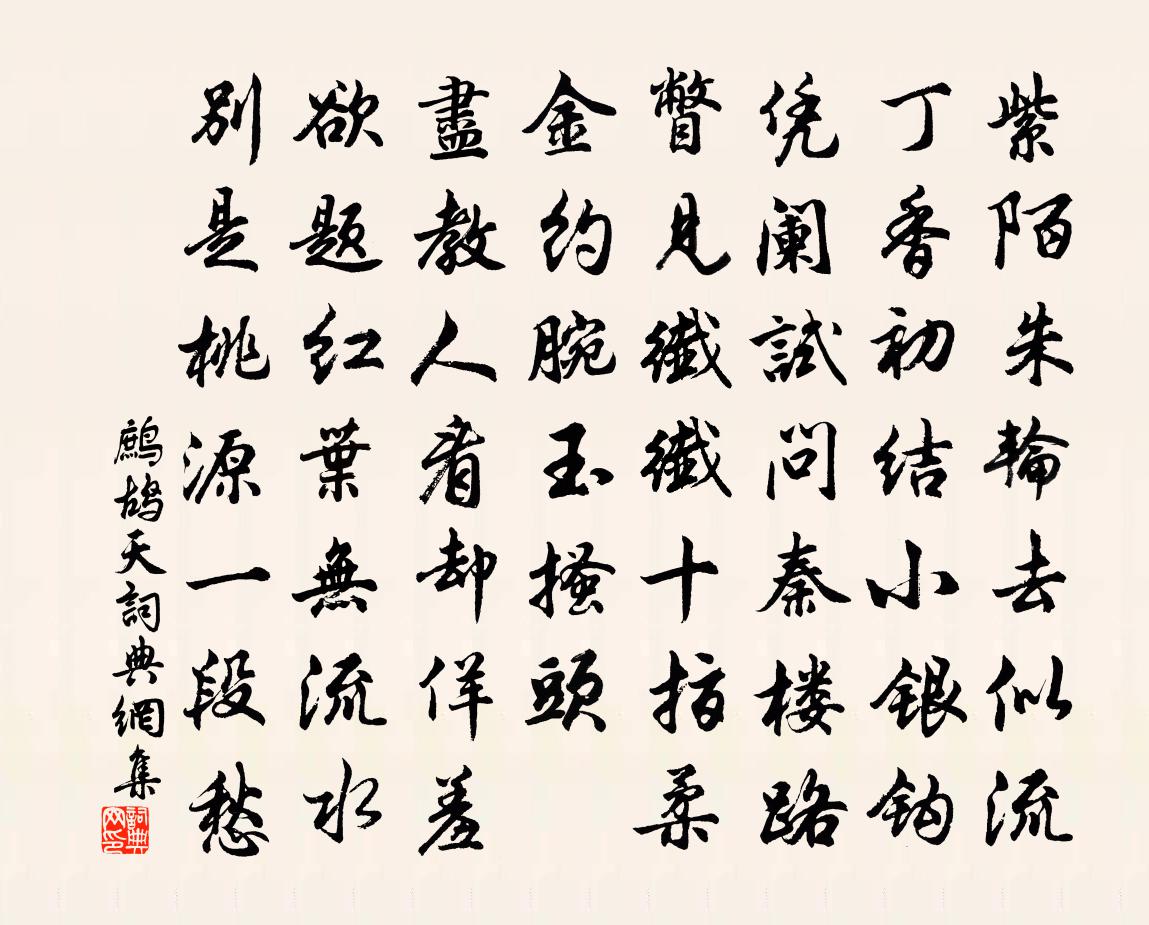 紫陌朱輪去似流
丁香初結小銀鈎
凭阑試問秦楼路
瞥見纖纖十指柔
金約腕玉搔頭
盡教人看却佯羞
欲题红葉無流水
别是桃源一段愁
鷓鴣天詞典網集
詞典
网印